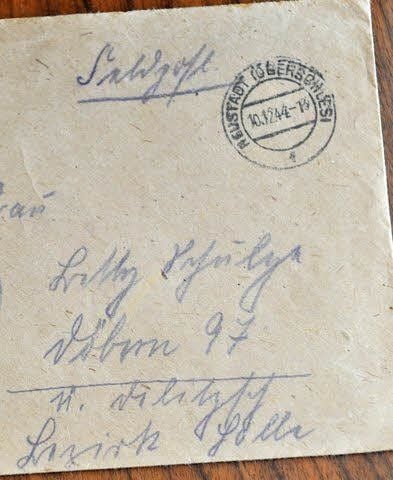 Feldpost
NEUSTADT (OBERSCHLES)
10.12.44-1
Frau
Betty Schulze
Döbern 97
ü. Delitzsch
Bezirk Halle